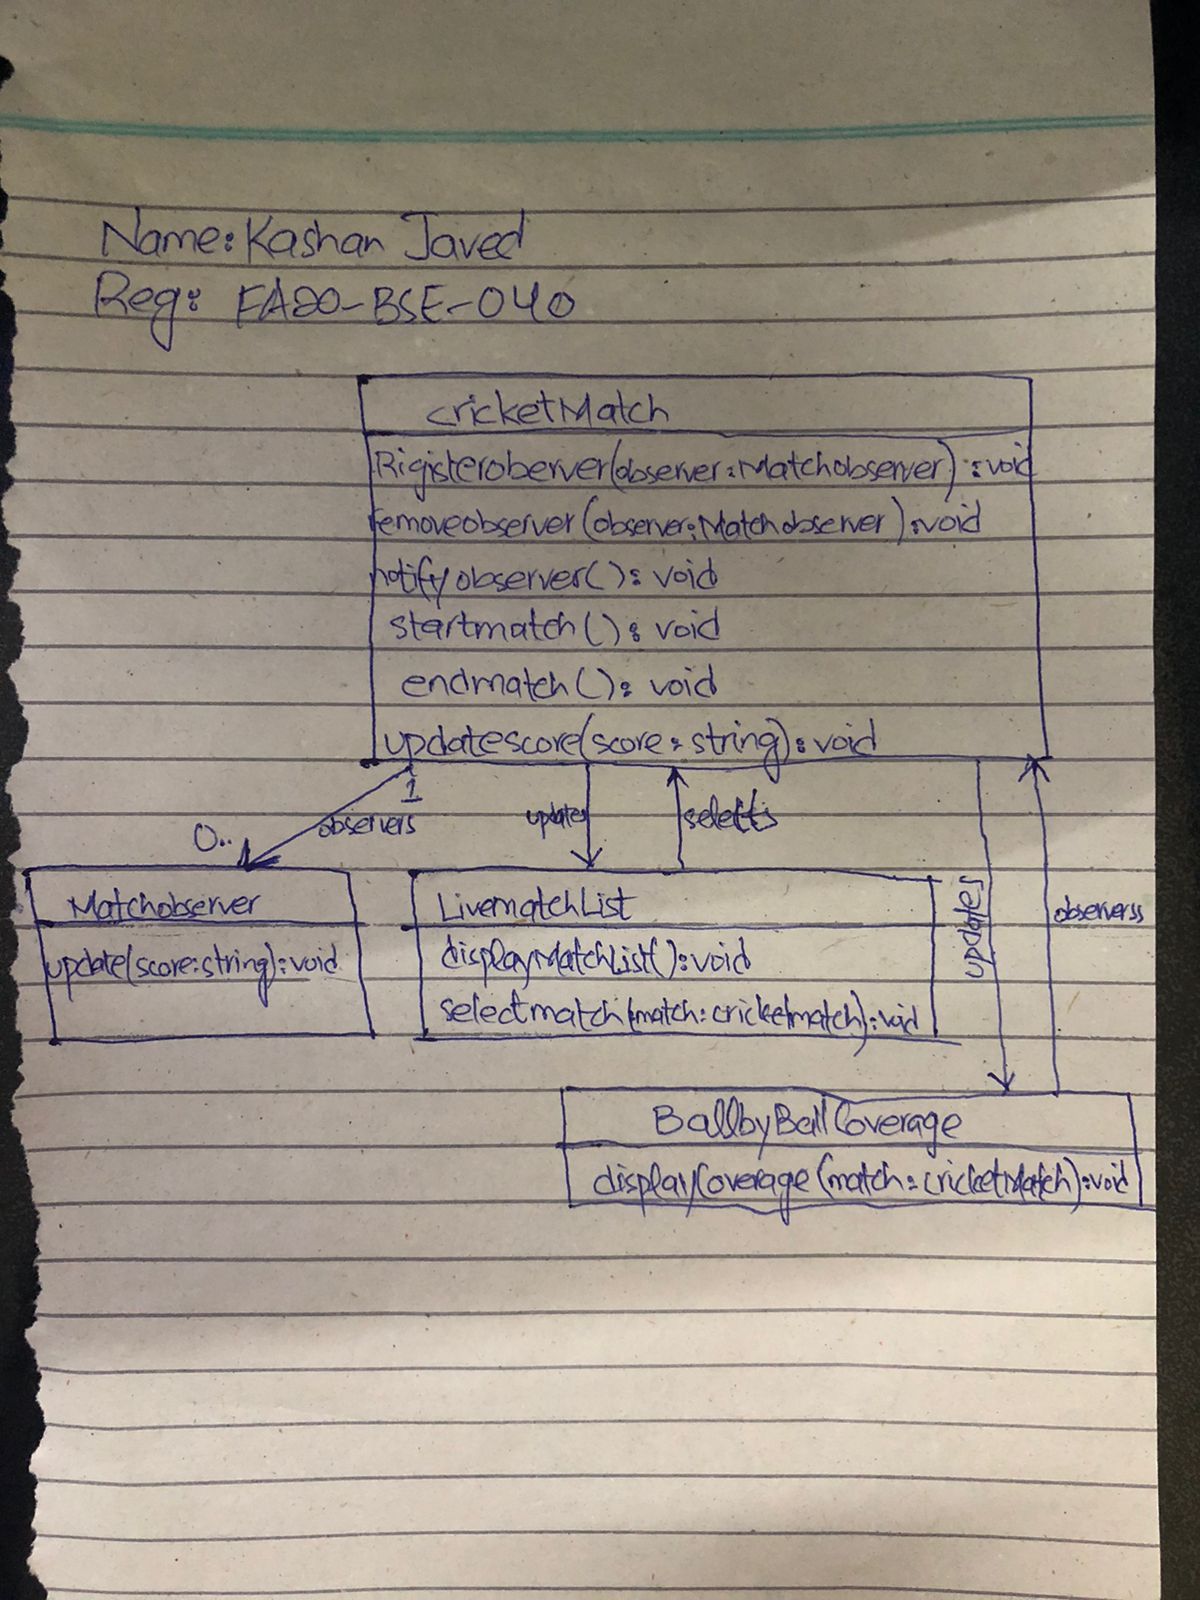 Name: Kashan Javed
Reg: FA20-BSE-040
cricketMatch
Rigisteroberver(observer:Matchobserver):void
removeobserver(observer:Matchobserver):void
notifyobserver():void
startmatch():void
endmatch():void
updatescore(score:string):void
1
0..
observers
updates
selects
updates
observerss
Matchobserver
update(score:string):void
LivematchList
displayMatchList():void
selectmatch(match:cricketmatch):void
BallbyBallCoverage
displayCoverage(match:cricketMatch):void